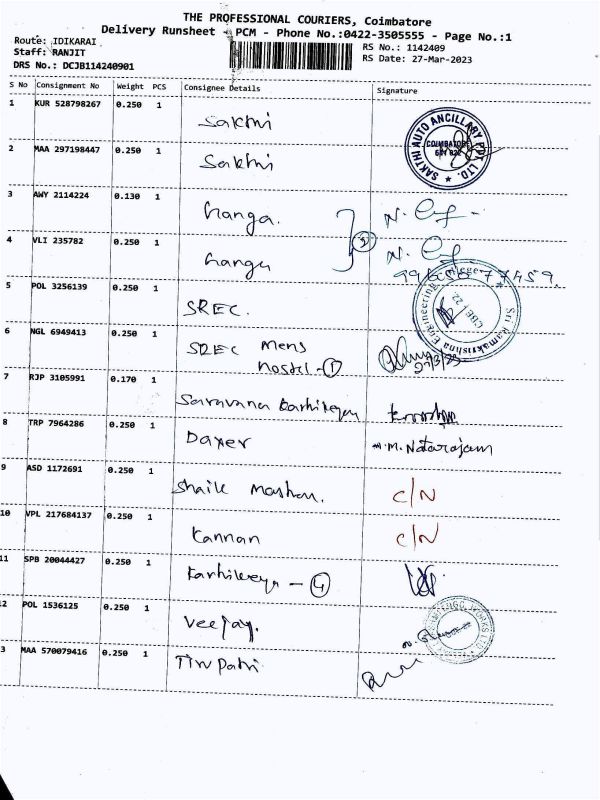 THE PROFESSIONAL COURIERS, Coimbatore
Delivery Runsheet - PCM - Phone No.:0422-3505555 - Page No.:1
Route: IDIKARAI
Staff: RANJIT
DRS No.: DCJB114240901
RS No.: 1142409
RS Date: 27-Mar-2023
S No Consignment No Weight PCS Consignee Details Signature
1 KUR 528798267 0.250 1 Sakthi
SAKTHI AUTO ANCILLARY PVT. LTD. COIMBATORE
2 MAA 297198447 0.250 1 Sakthi
3 AWY 2114224 0.130 1 Ganga.
4 VLI 235782 0.250 1 Ganga
5 POL 3256139 0.250 1 SREC.
Sri Ramakrishna Engineering College CBE 22.
6 NGL 6949413 0.250 1 SREC mens
hostel - 1
7 RJP 3105991 0.170 1 Saravana Karthikeyan
8 TRP 7964286 0.250 1 Daxer M. Natarajam
9 ASD 1172691 0.250 1 Shaik C/N
10 VPL 217684137 0.250 1 Kannan C/N
11 SPB 20044427 0.250 1 Karthikeya - 4
2 POL 1536125 0.250 1 Veejay.
3 MAA 570079416 0.250 1 Tirupathi